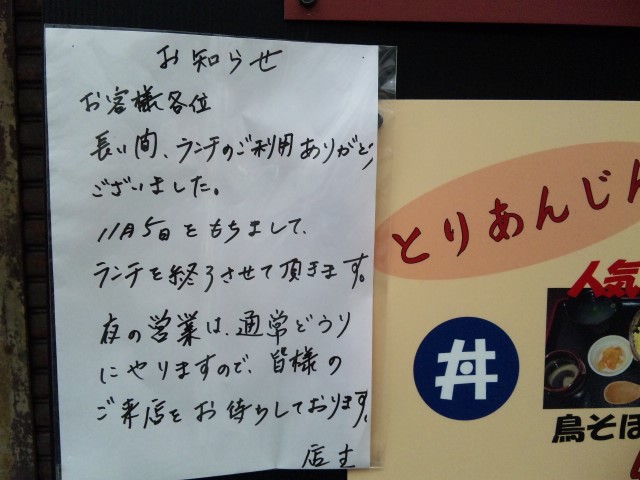 お知らせ
お客様各位
長い間、ランチのご利用ありがとう
ございました。
11月5日をもちまして、
ランチを終了させて頂きます。
夜の営業は、通常どうり
にやりますので、皆様の
ご来店をお待ちしております。
店主
とりあんじん
人気
丼
鳥そば